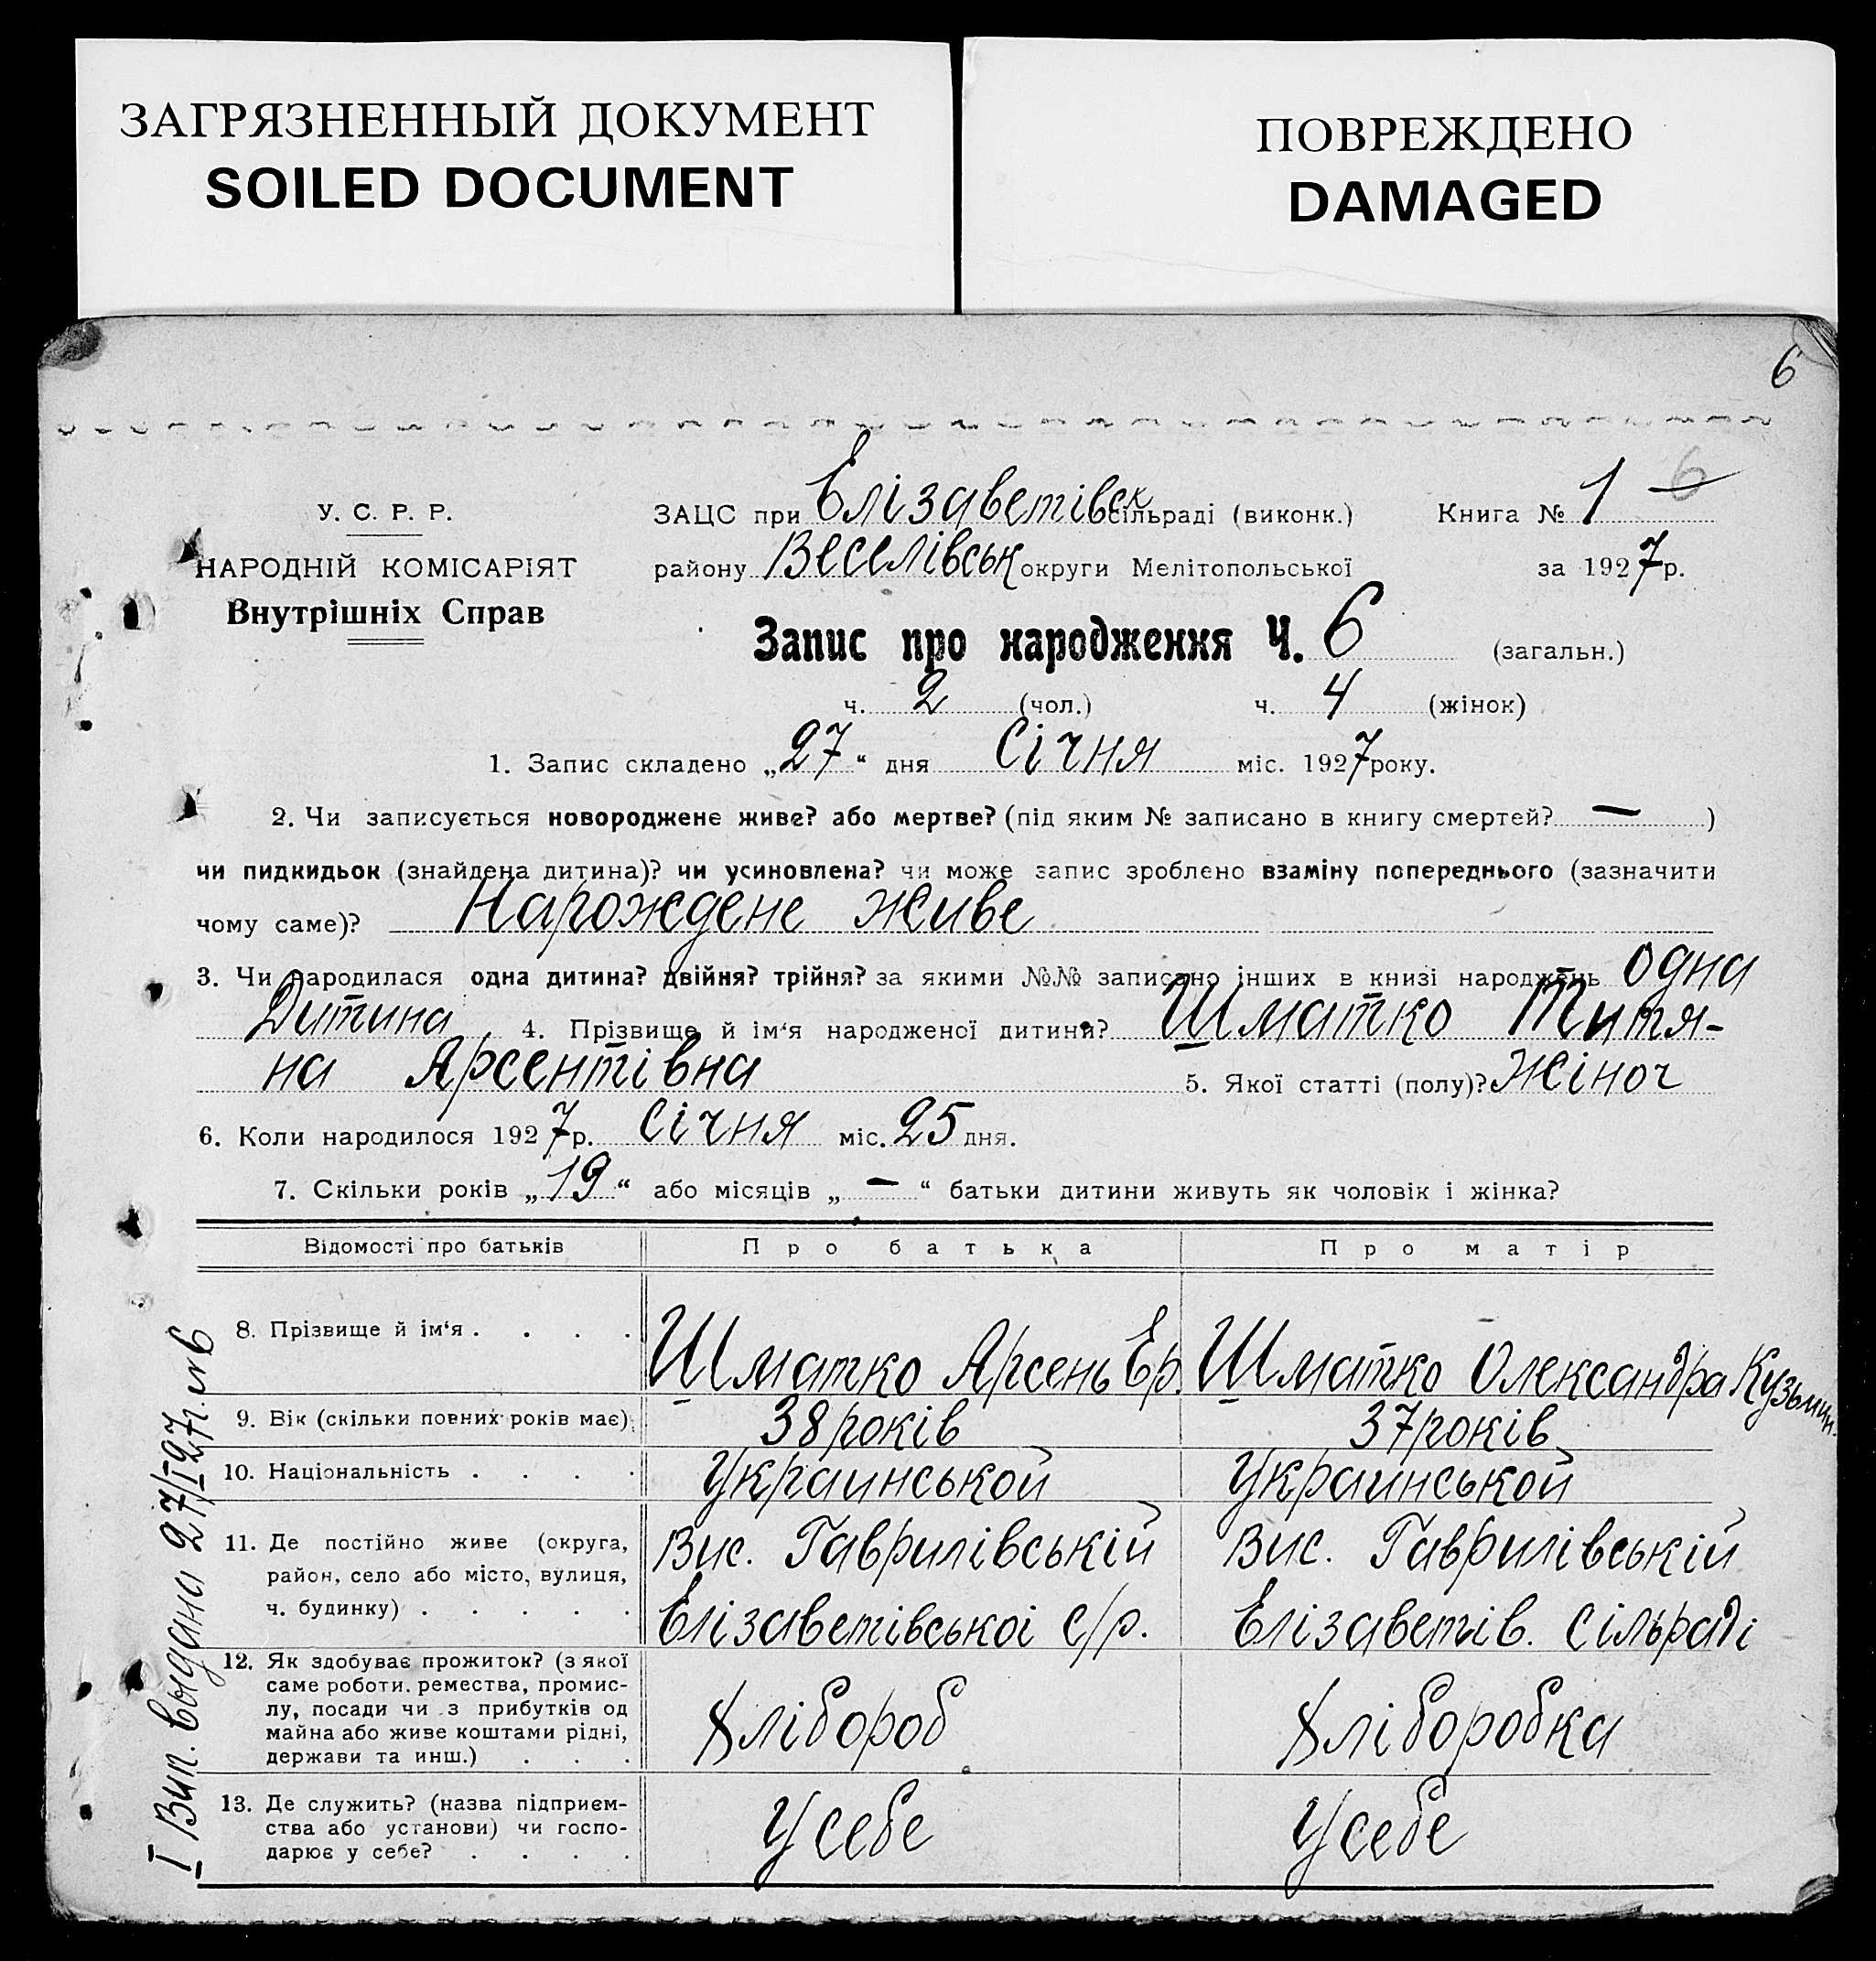 ЗАГРЯЗНЕННЫЙ ДОКУМЕНТ
SOILED DOCUMENT
ПОВРЕЖДЕНО
DAMAGED
6
У. С. Р. Р.
НАРОДНІЙ КОМІСАРІЯТ
Внутрішніх Справ
ЗАЦС при Елізаветівськ сільраді (виконк.)
Книга № 1 6
району Веселівськ округи Мелітопольської
за 1927 р.
Запис про народження Ч. 6 (загальн.)
ч. 2 (чол.) ч. 4 (жінок)
1. Запис складено „27“ дня Січня міс. 1927 року.
2. Чи записується новороджене живе? або мертве? (під яким № записано в книгу смертей? — )
чи пидкидьок (знайдена дитина)? чи усиновлена? чи може запис зроблено взаміну попереднього (зазначити
чому саме)? Нарождене живе
3. Чи народилася одна дитина? двійня? трійня? за якими №№ записано інших в книзі народжень одна
Дитина 4. Прізвище й ім‘я народженої дитини? Шматко Титя-
на Арсентівна 5. Якої статті (полу)? Жіноч
6. Коли народилося 1927 р. Січня міс. 25 дня.
7. Скільки років „19“ або місяців „—“ батьки дитини живуть як чоловік і жінка?
Відомості про батьків Про батька Про матір
8. Прізвище й ім‘я . . . . Шматко Арсень Ер. Шматко Олександра Кузьмин.
9. Вік (скільки повних років має) 38 років 37 років
10. Національність . . . . Украинськой Украинськой
11. Де постійно живе (округа,
район, село або місто, вулиця,
ч. будинку) . . . . .
Вис. Гаврилівській
Елізаветівськоі с/р.
Вис. Гаврилівській
Елізаветів. сільраді
12. Як здобуває прожиток? (з якої
саме роботи, ремества, промис-
лу, посади чи з прибутків од
майна або живе коштами рідні,
держави та инш.) . . .
Хлібороб
Хлiборобка
13. Де служить? (назва підприєм-
ства або установи) чи госпо-
дарює у себе? . . . .
У себе
У себе
I Вип. выдана 27/I 27 г. №6